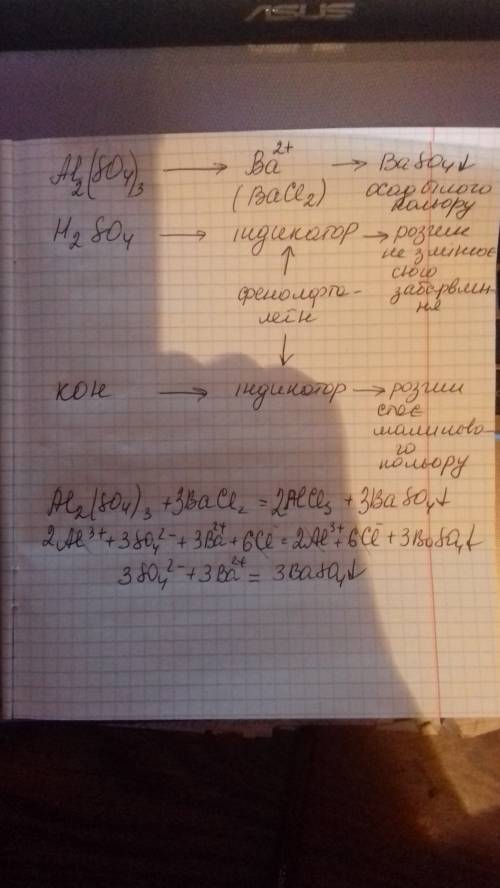 ASUS
Al₂(SO₄)₃ → Ba²⁺ → BaSO₄↓
(BaCl₂) осад білого
кольору
H₂SO₄ → індикатор → розчин
не змінює
↑ свого
фенолфта- забарвлен-
леїн ня
↓
KOH → індикатор → розчин
стає
малиново-
го
кольору
Al₂(SO₄)₃ + 3BaCl₂ = 2AlCl₃ + 3BaSO₄↓
2Al³⁺ + 3SO₄²⁻ + 3Ba²⁺ + 6Cl⁻ = 2Al³⁺ + 6Cl⁻ + 3BaSO₄↓
3SO₄²⁻ + 3Ba²⁺ = 3BaSO₄↓